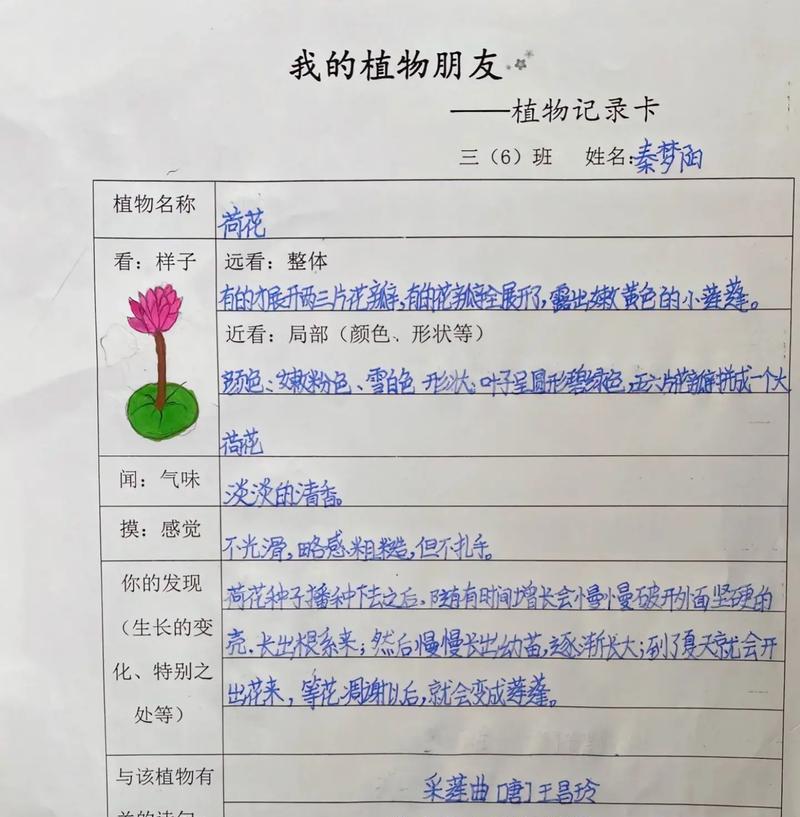 我的植物朋友
——植物记录卡
三（6）班 姓名:秦梦阳
植物名称
荷花
看：样子
远看：整体
有的才展开两三片花瓣,有的花瓣全展开了,露出嫩黄色的小莲蓬。
近看：局部（颜色、形状等）
颜色:嫩粉色、雪白色 形状:叶子呈圆形碧绿色,五六片花瓣拼成一个大
荷花
闻：气味
淡淡的清香。
摸：感觉
不光滑,略感粗糙,但不扎手。
你的发现
（生长的变
化、特别之
处等）
荷花种子播种下去之后,随有时间增长会慢慢破开外面坚硬的
壳.长出根系来;然后慢慢长出幼苗,逐渐长大;到了夏天就会开
出花来,等花凋谢以后,就会变成莲蓬。
与该植物有
关的诗句
采莲曲[唐]王昌玲